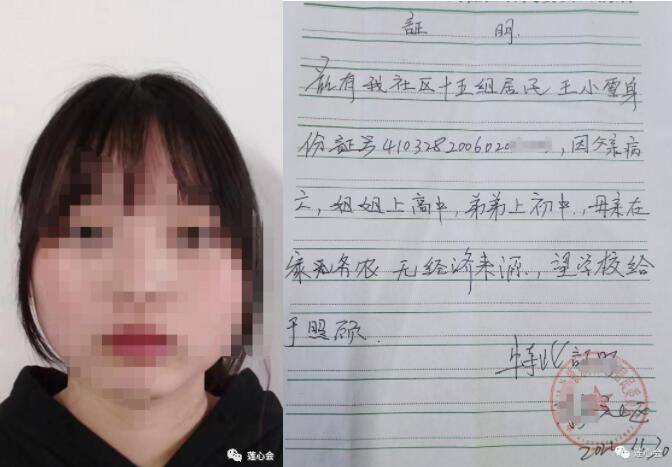 証 明.
兹有我社区十五组居民 王小雪身
份証号4103282006020 ，因父亲病
亡，姐姐上高中，弟弟上初中，母亲在
家务农 无经济来源，望学校给
予照顾.
特此証明
莲心会
莲心会